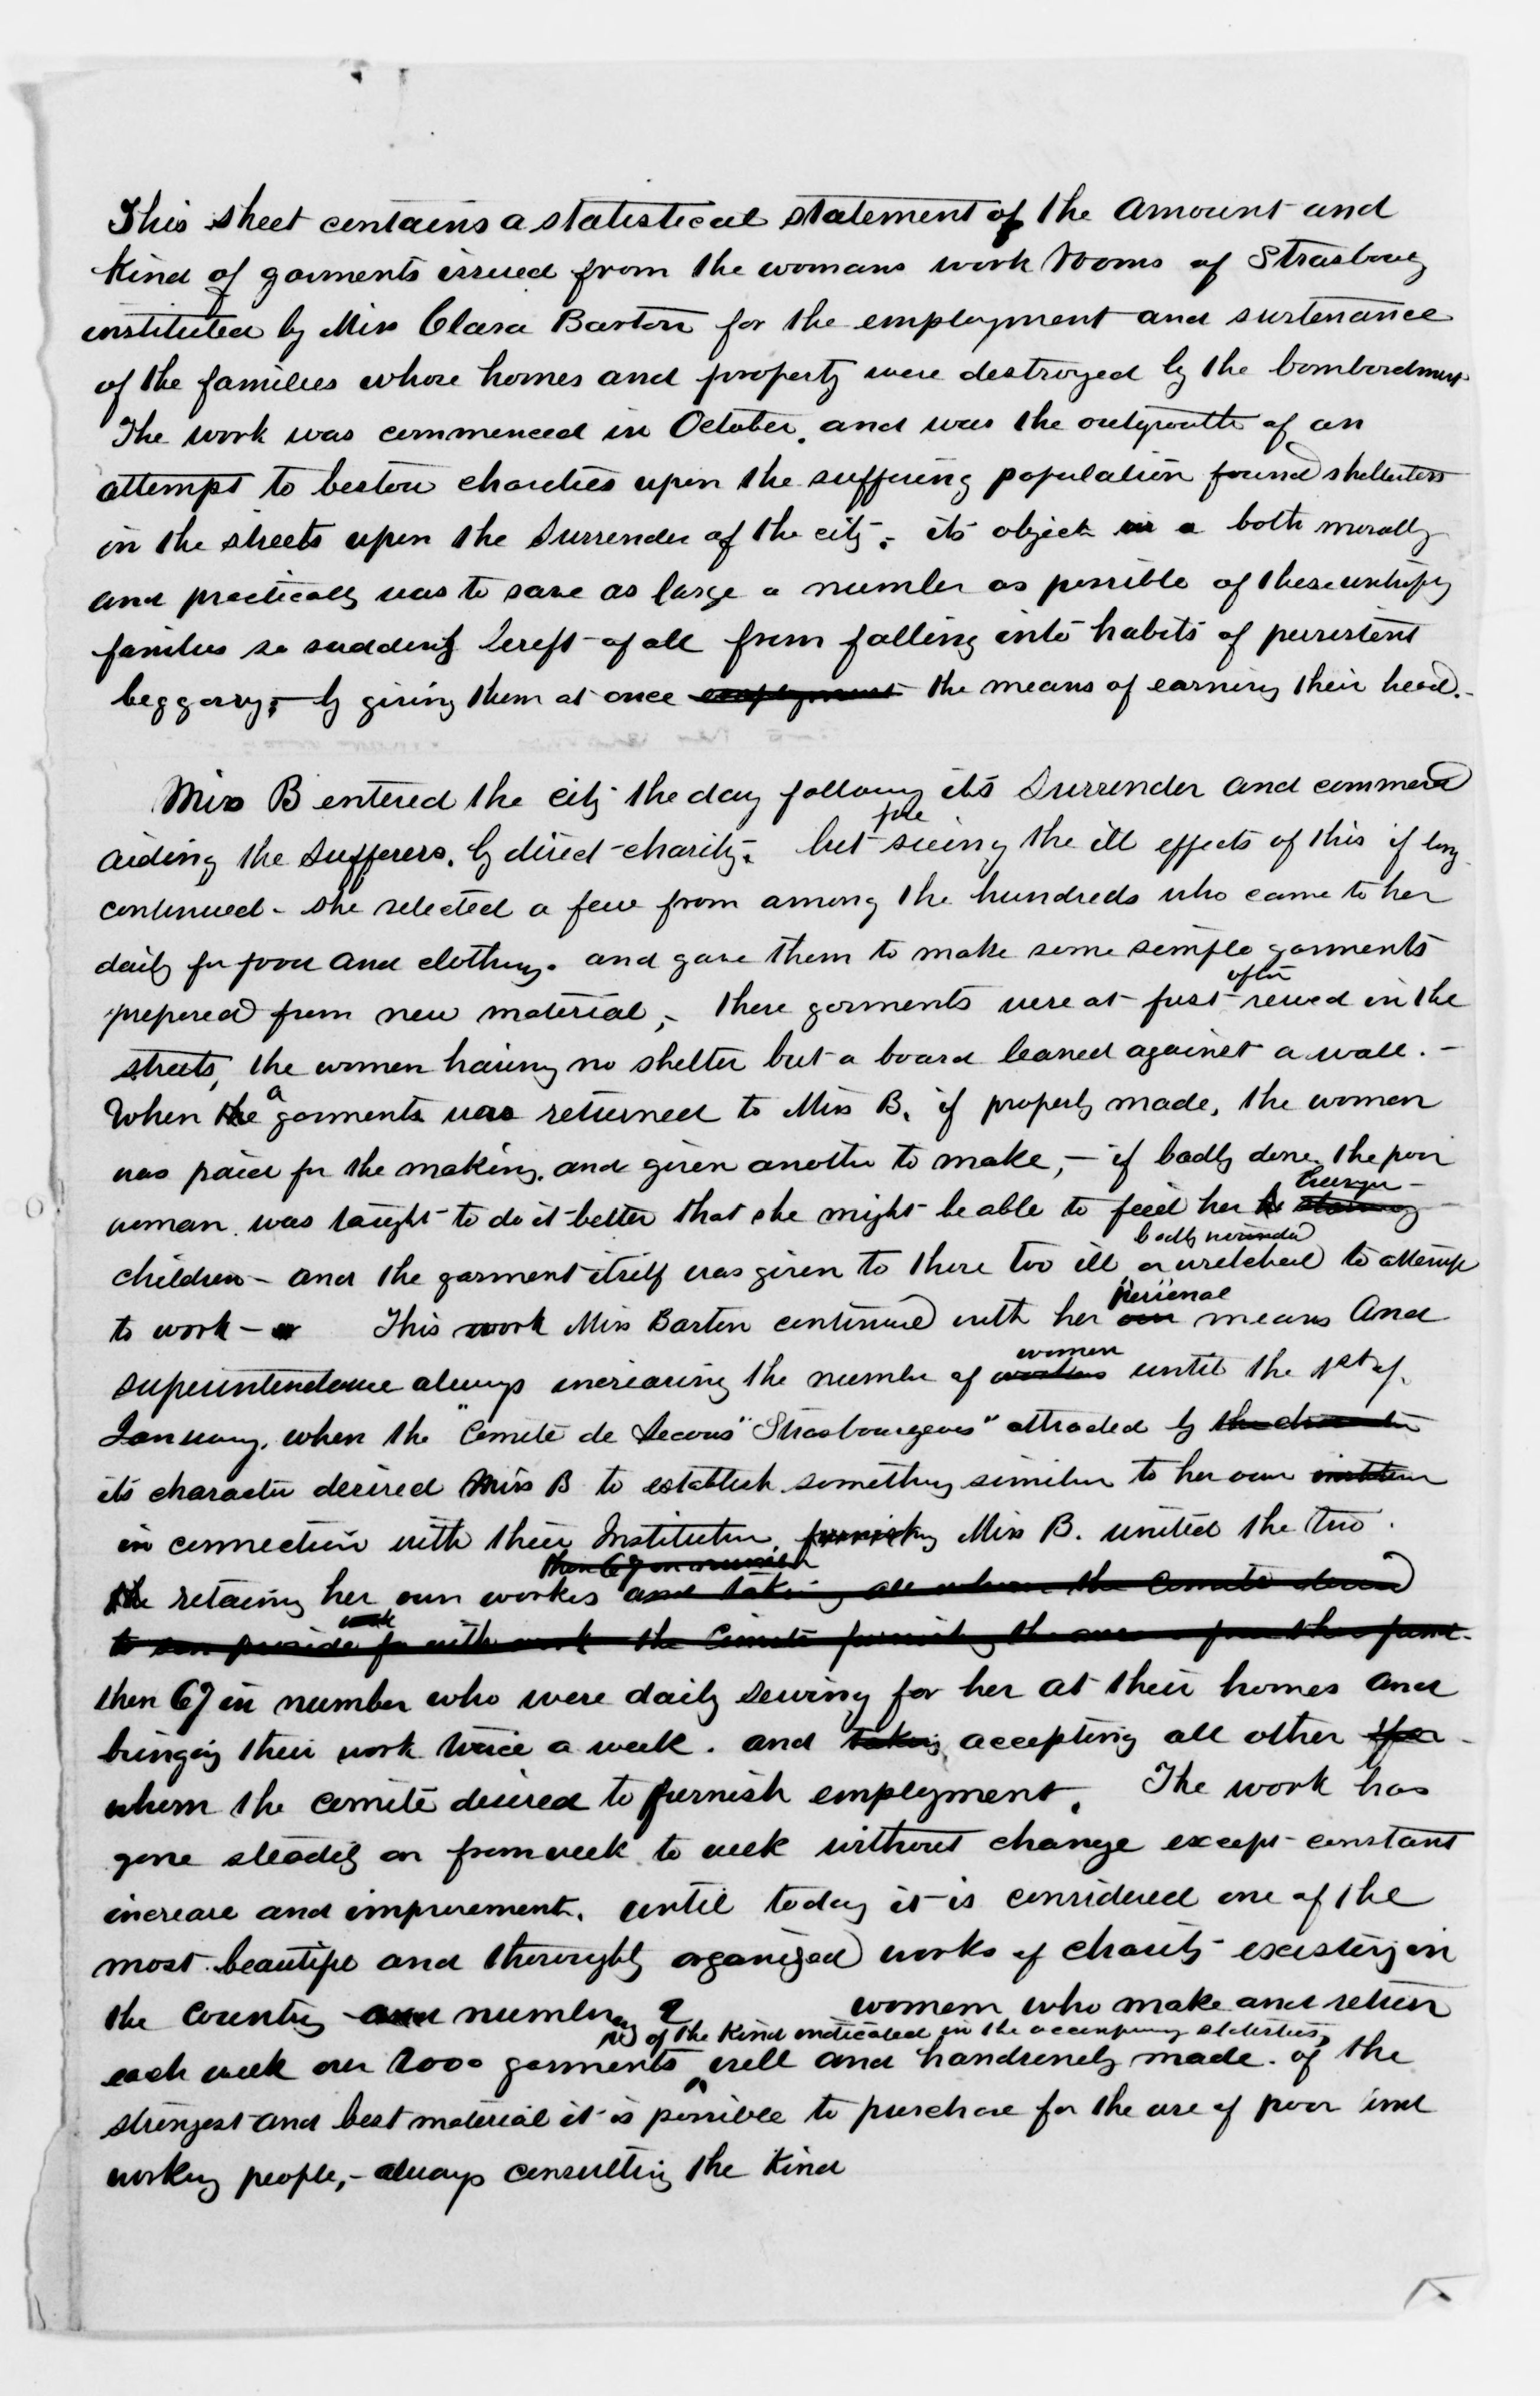 This sheet contains a statistical statement of the amount and
Kind of garments issued from the womans work rooms of Strasbourg
instituted by Miss Clara Barton for the employment and sustenance
of the families whose homes and property were destroyed by the bombardment
The work was commenced in October, and was the outgrowth of an
attempt to bestow charities upon the suffering population found shelterless
in the streets upon the Surrender of the city; its object in a both morally
and practically was to save as large a number as possible of these unhappy
families so suddenly bereft of all from falling into habits of persistent
beggarry; by giving them at once employment the means of earning their head.
Miss B entered the city the day following its Surrender and commenced
aiding the Sufferers, by direct charity. but
fore
seeing the ill effects of this if long
continued - she selected a few from among the hundreds who came to her
daily for food and clothing. and gave them to make some simple garments
often
prepared from new material, - these garments were at first sewed in the
streets, the women having no shelter but a board leaned against a wall. -
a
When the garments was returned to Miss B, if properly made, the woman
was paid for the making, and given another to make, - if badly done, the poor
hungry -
woman was taught to do it better that she might be able to feed her
badly wounded
children - and the garment itself was given to those too ill or wretched to attempt
personal
to work - This work Miss Barton continued with her own means and
women
superintendance always increasing the number of workers until the 1st of
January, when the "Comité de Secours Strasbourgeois" attracted by the character
its character desired Miss B to establish something similar to her own
in connection with their Institution, furnishing Miss B. united the two.
then 67 in number
the retaining her own workers and taking all whom the Comité desired
work
to provide for with work the Comité furnishing the
then 67 in number who were daily sewing for her at their homes and
bringing their work twice a week. and taking accepting all other
whom the comité desired to furnish employment. The work has
gone steadily on from week to week without change except constant
increase and improvement, until today it is considered one of the
most beautiful and thoroughly organized works of charity existing in
the country and numbering ? women who make and return
of the Kind indicated in the accompanying statistics,
each week over 2000 garments well and handsomely made. of the
strongest and best material it is possible to purchase for the use of poor and
working people, - always consulting the Kind